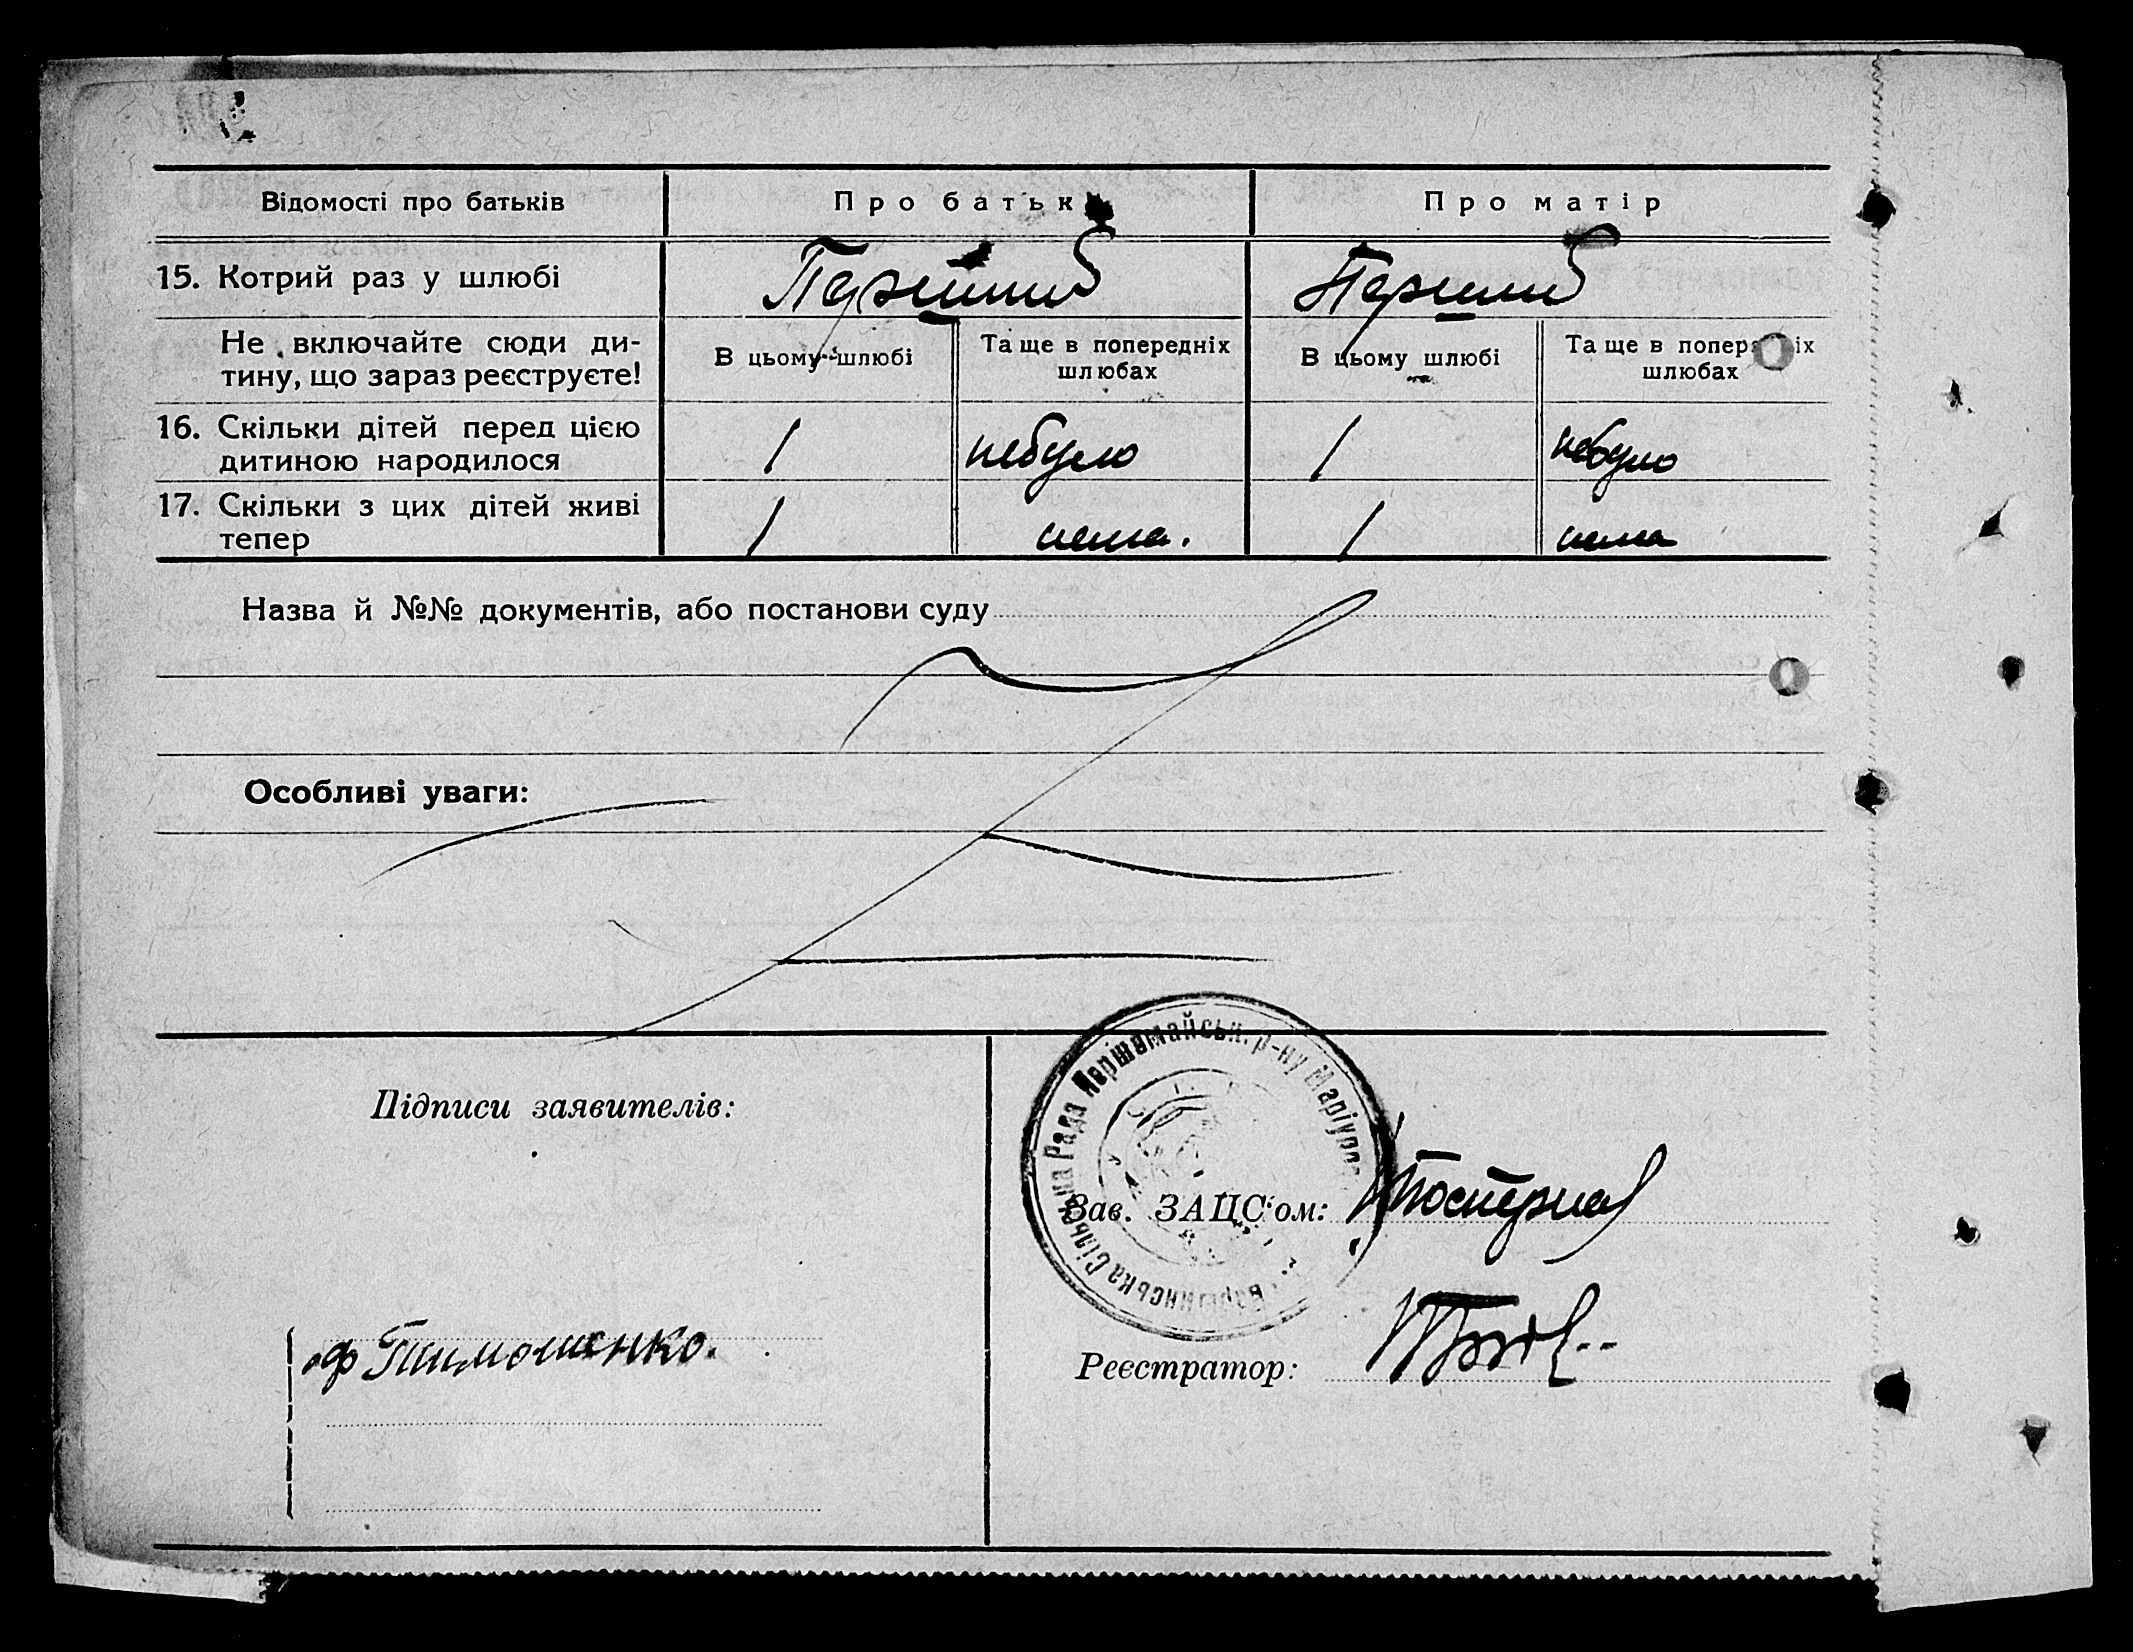 Відомості про батьків
Про батьк
Про матір
15. Котрий раз у шлюбі
Перший
Перший
Не включайте сюди ди-
тину, що зараз реєструєте!
В цьому шлюбі
Та ще в попередніх
шлюбах
В цьому шлюбі
Та ще в попер іх
шлюбах
16. Скільки дітей перед цією
дитиною народилося
1
небуло
1
небуло
17. Скільки з цих дітей живі
тепер
1
нема.
1
нема
Назва й №№ документів, або постанови суду
Особливі уваги:
Підписи заявителів:
Сільська Рада Першомайськ. р-ну Маріуп
Зав. ЗАЦС'ом:
ф Тимошенко.
Реєстратор: